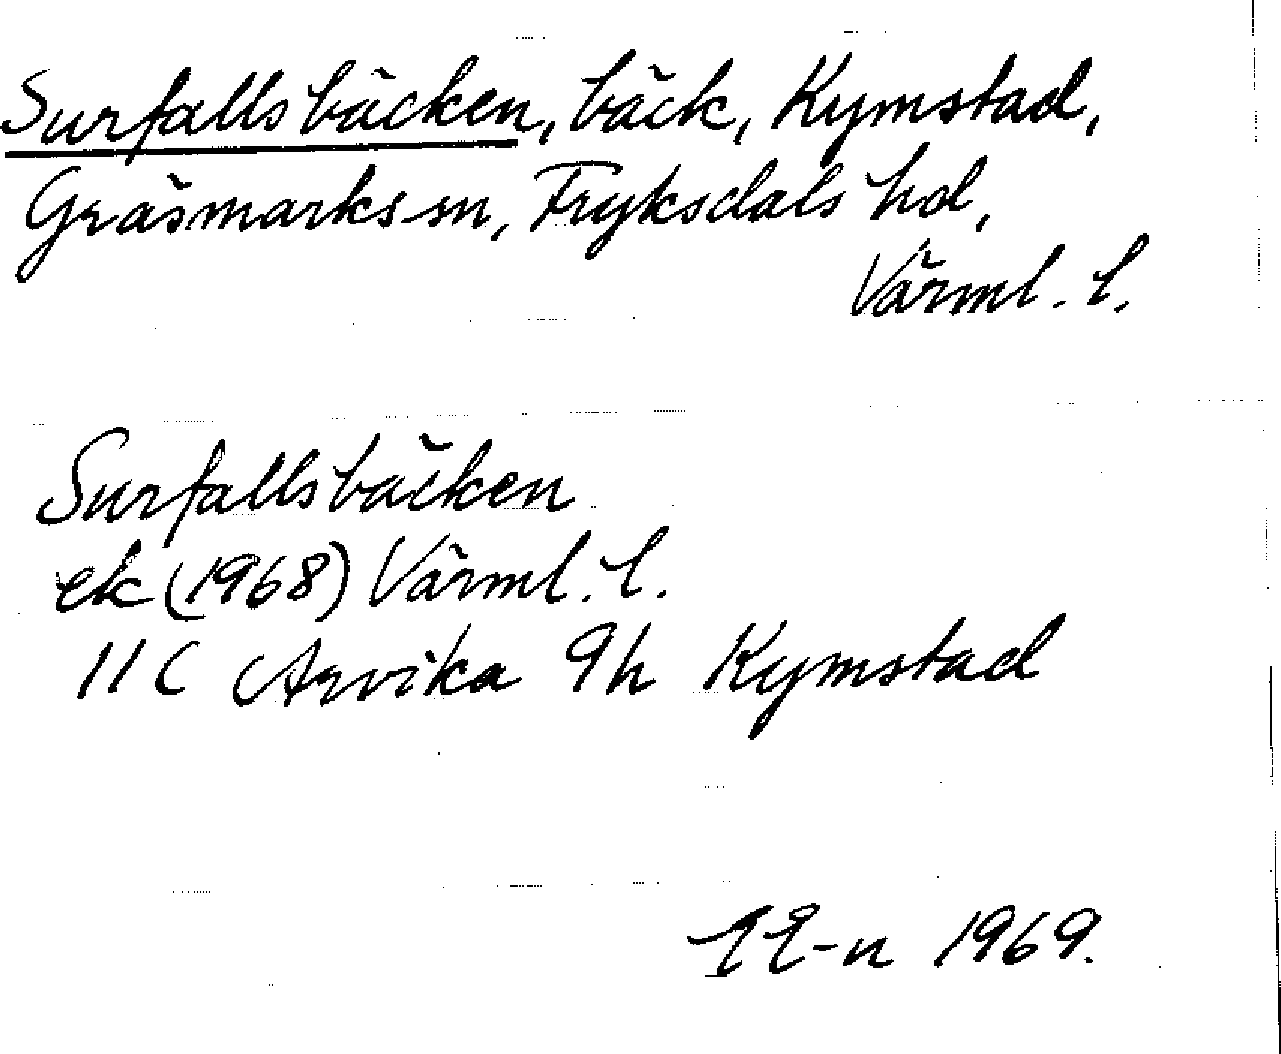 Surfallsbäcken, bäck, Kymstad,
Gräsmarks sn, Fryksdals hd,
Värml. l.
Surfallsbäcken
ek (1968) Värml. l.
11 C Arvika 9h Kymstad
1969.